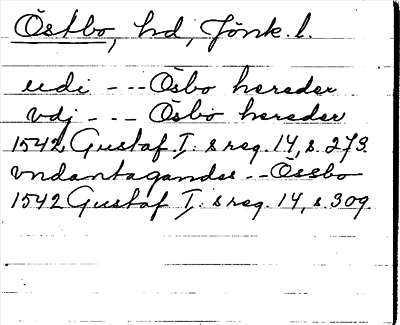 Östbo, hd, Jönk. l.
udi --- Ösbo hereder
vdj --- Ösbo hereder
1542 Gustaf I:s reg. 14, s. 273
vndantagandes -- Össbo
1542 Gustaf I:s reg. 14, s. 309